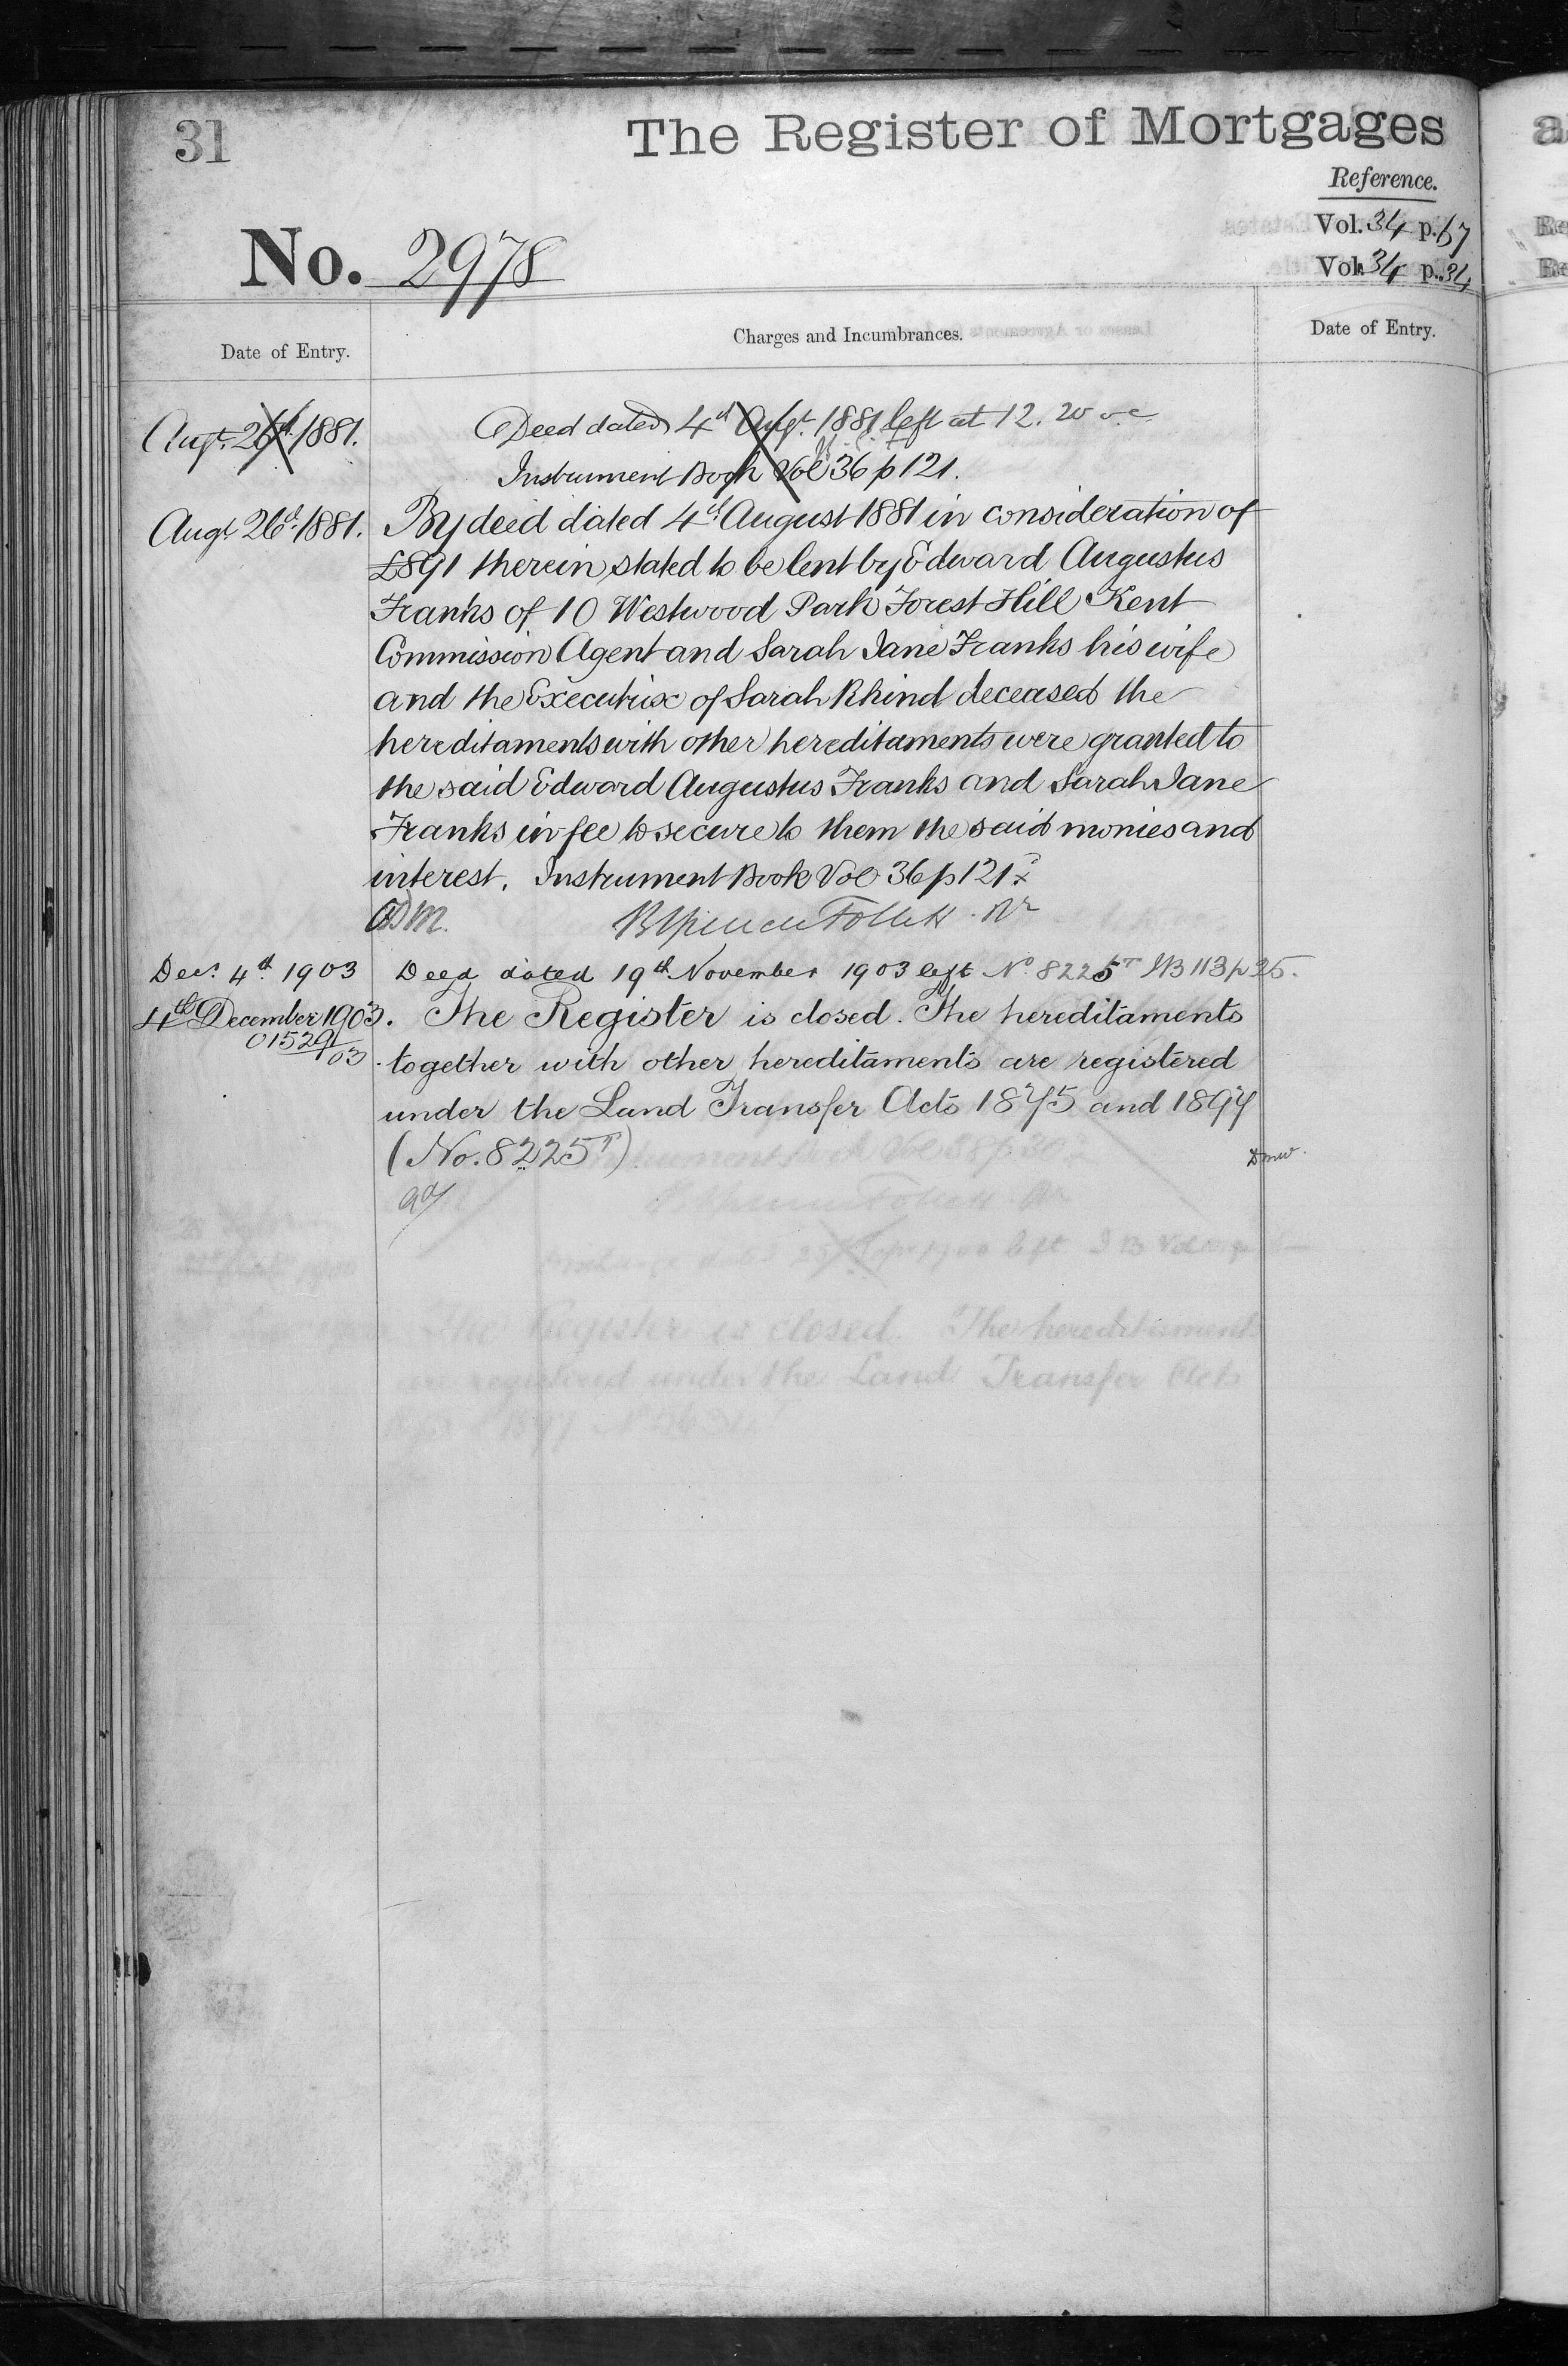 31
The Register of Mortgages
Reference.
Vol. 34 p. 67
Vol. 34 p. 34
No. 2978
Date of Entry.
Charges and Incumbrances.
Date of Entry.
Augt. 26th 1881.
Deed dated 4th Augt. 1881 left at 12.20
Instrument Book Vol 36 p 121.
Augt. 26th 1881.
By deed dated 4th August 1881 in consideration of
£891 therein stated to be lent by Edward Augustus
Franks of 10 Westwood Park Forest Hill Kent
Commission Agent and Sarah Jane Franks his wife
and the Executrix of Sarah Rhind deceased the
hereditaments with other hereditaments were granted to
the said Edward Augustus Franks and Sarah Jane
Franks in fee to secure to them the said monies and
interest. Instrument Book Vol 36 p 121
R Spencer Follett
Decr. 4th 1903
Deed dated 19th November 1903 left No. 8225T IB 113 p 25.
4th December 1903.
01529/03
The Register is closed. The hereditaments
together with other hereditaments are registered
under the Land Transfer Acts 1875 and 1897
(No. 8225T)
The Register is closed. The hereditaments
are registered under the Land Transfer Acts